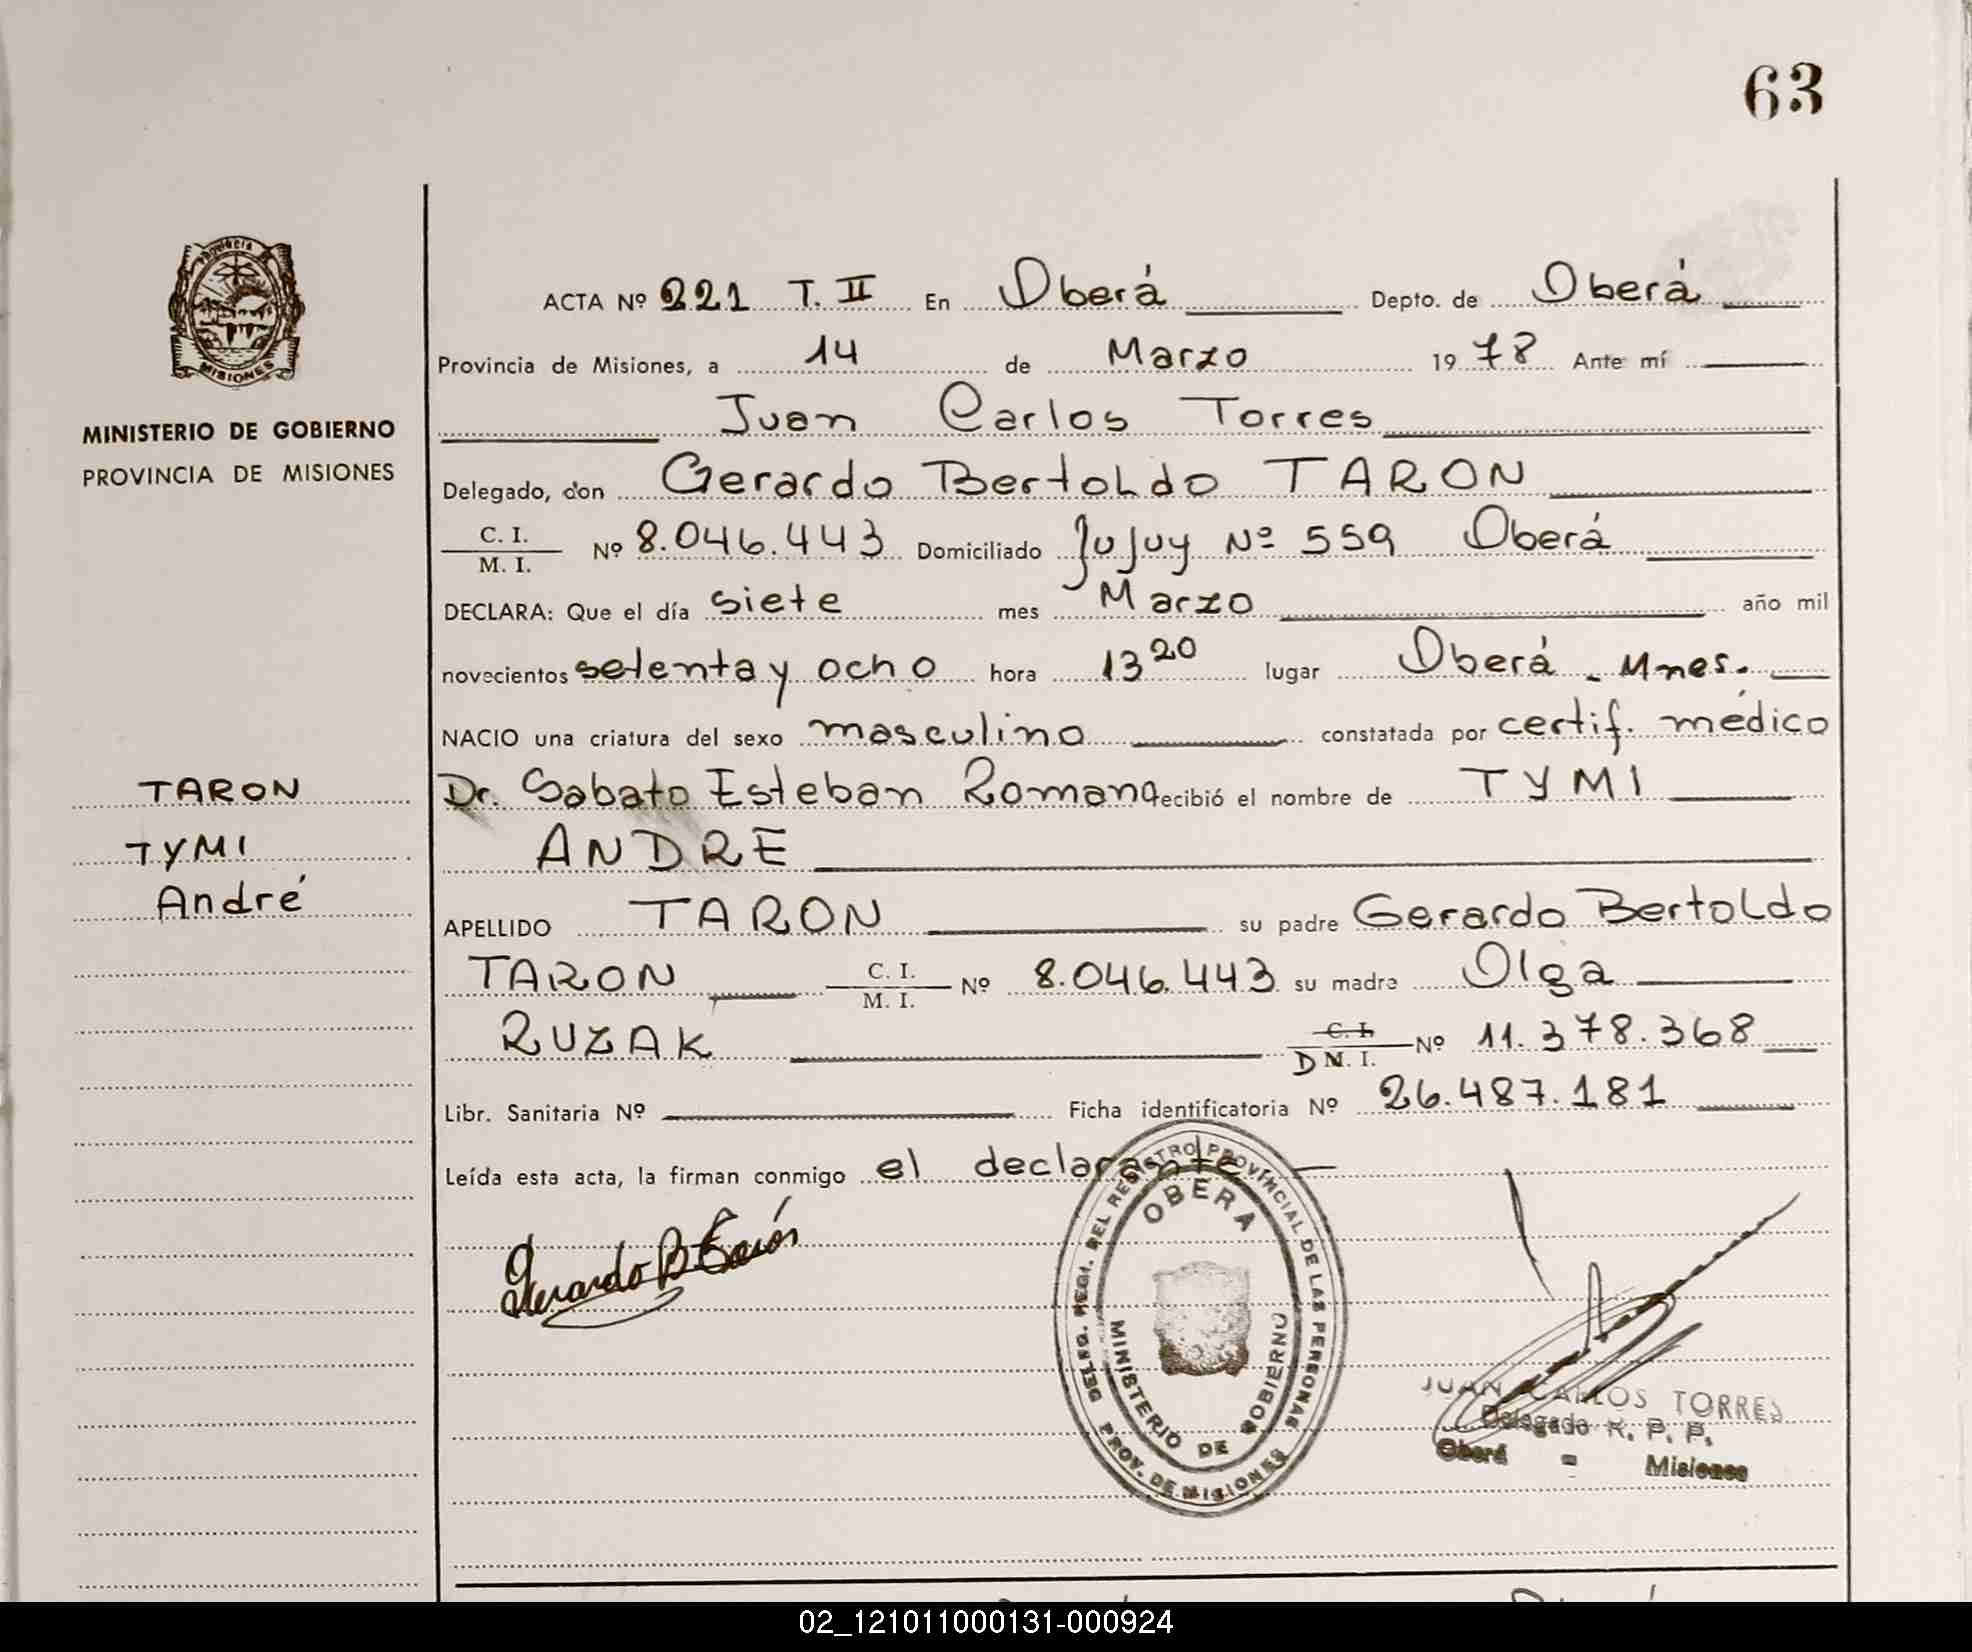 63
Provincia
MISIONES
MINISTERIO DE GOBIERNO
PROVINCIA DE MISIONES
TARON
TYMI
André
ACTA Nº 221 T. II En Oberá Depto. de Oberá
Provincia de Misiones, a 14 de Marzo 1978 Ante mí
Juan Carlos Torres
Delegado, don Gerardo Bertoldo TARON
C. I.
M. I. Nº 8.046.443 Domiciliado Jujuy Nº 559 Oberá
DECLARA: Que el día siete mes Marzo año mil
novecientos setenta y ocho hora 13 20 lugar Oberá - Mnes.
NACIO una criatura del sexo masculino constatada por certif. médico
Dr. Sabato Esteban Romano recibió el nombre de TYMI
ANDRE
APELLIDO TARON su padre Gerardo Bertoldo
TARON C. I. M. I. Nº 8.046.443 su madre Olga
RUZAK C. I. D M. I. Nº 11.378.368
Libr. Sanitaria Nº Ficha identificatoria Nº 26.487.181
Leída esta acta, la firman conmigo el declarante
Gerardo B Tarón
DELEG. REGI. DEL REGISTRO PROVINCIAL DE LAS PERSONAS
PROV. DE MISIONES
OBERA
MINISTERIO DE GOBIERNO
JUAN CARLOS TORRES
Delegado R. P. P.
Oberá - Misiones
02_121011000131-000924